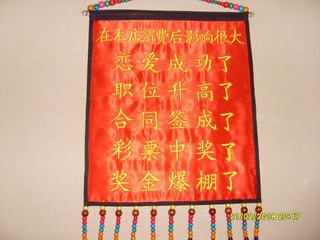 在本店消费后影响很大
恋爱成功了
职位升高了
合同签成了
彩票中奖了
奖金爆棚了
21/02/2018 20:47